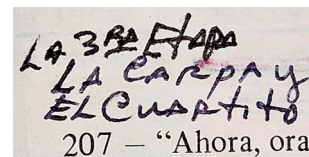 LA 3RA Etapa
LA CARPA y
EL CUARTITO
207 – “Ahora, ora